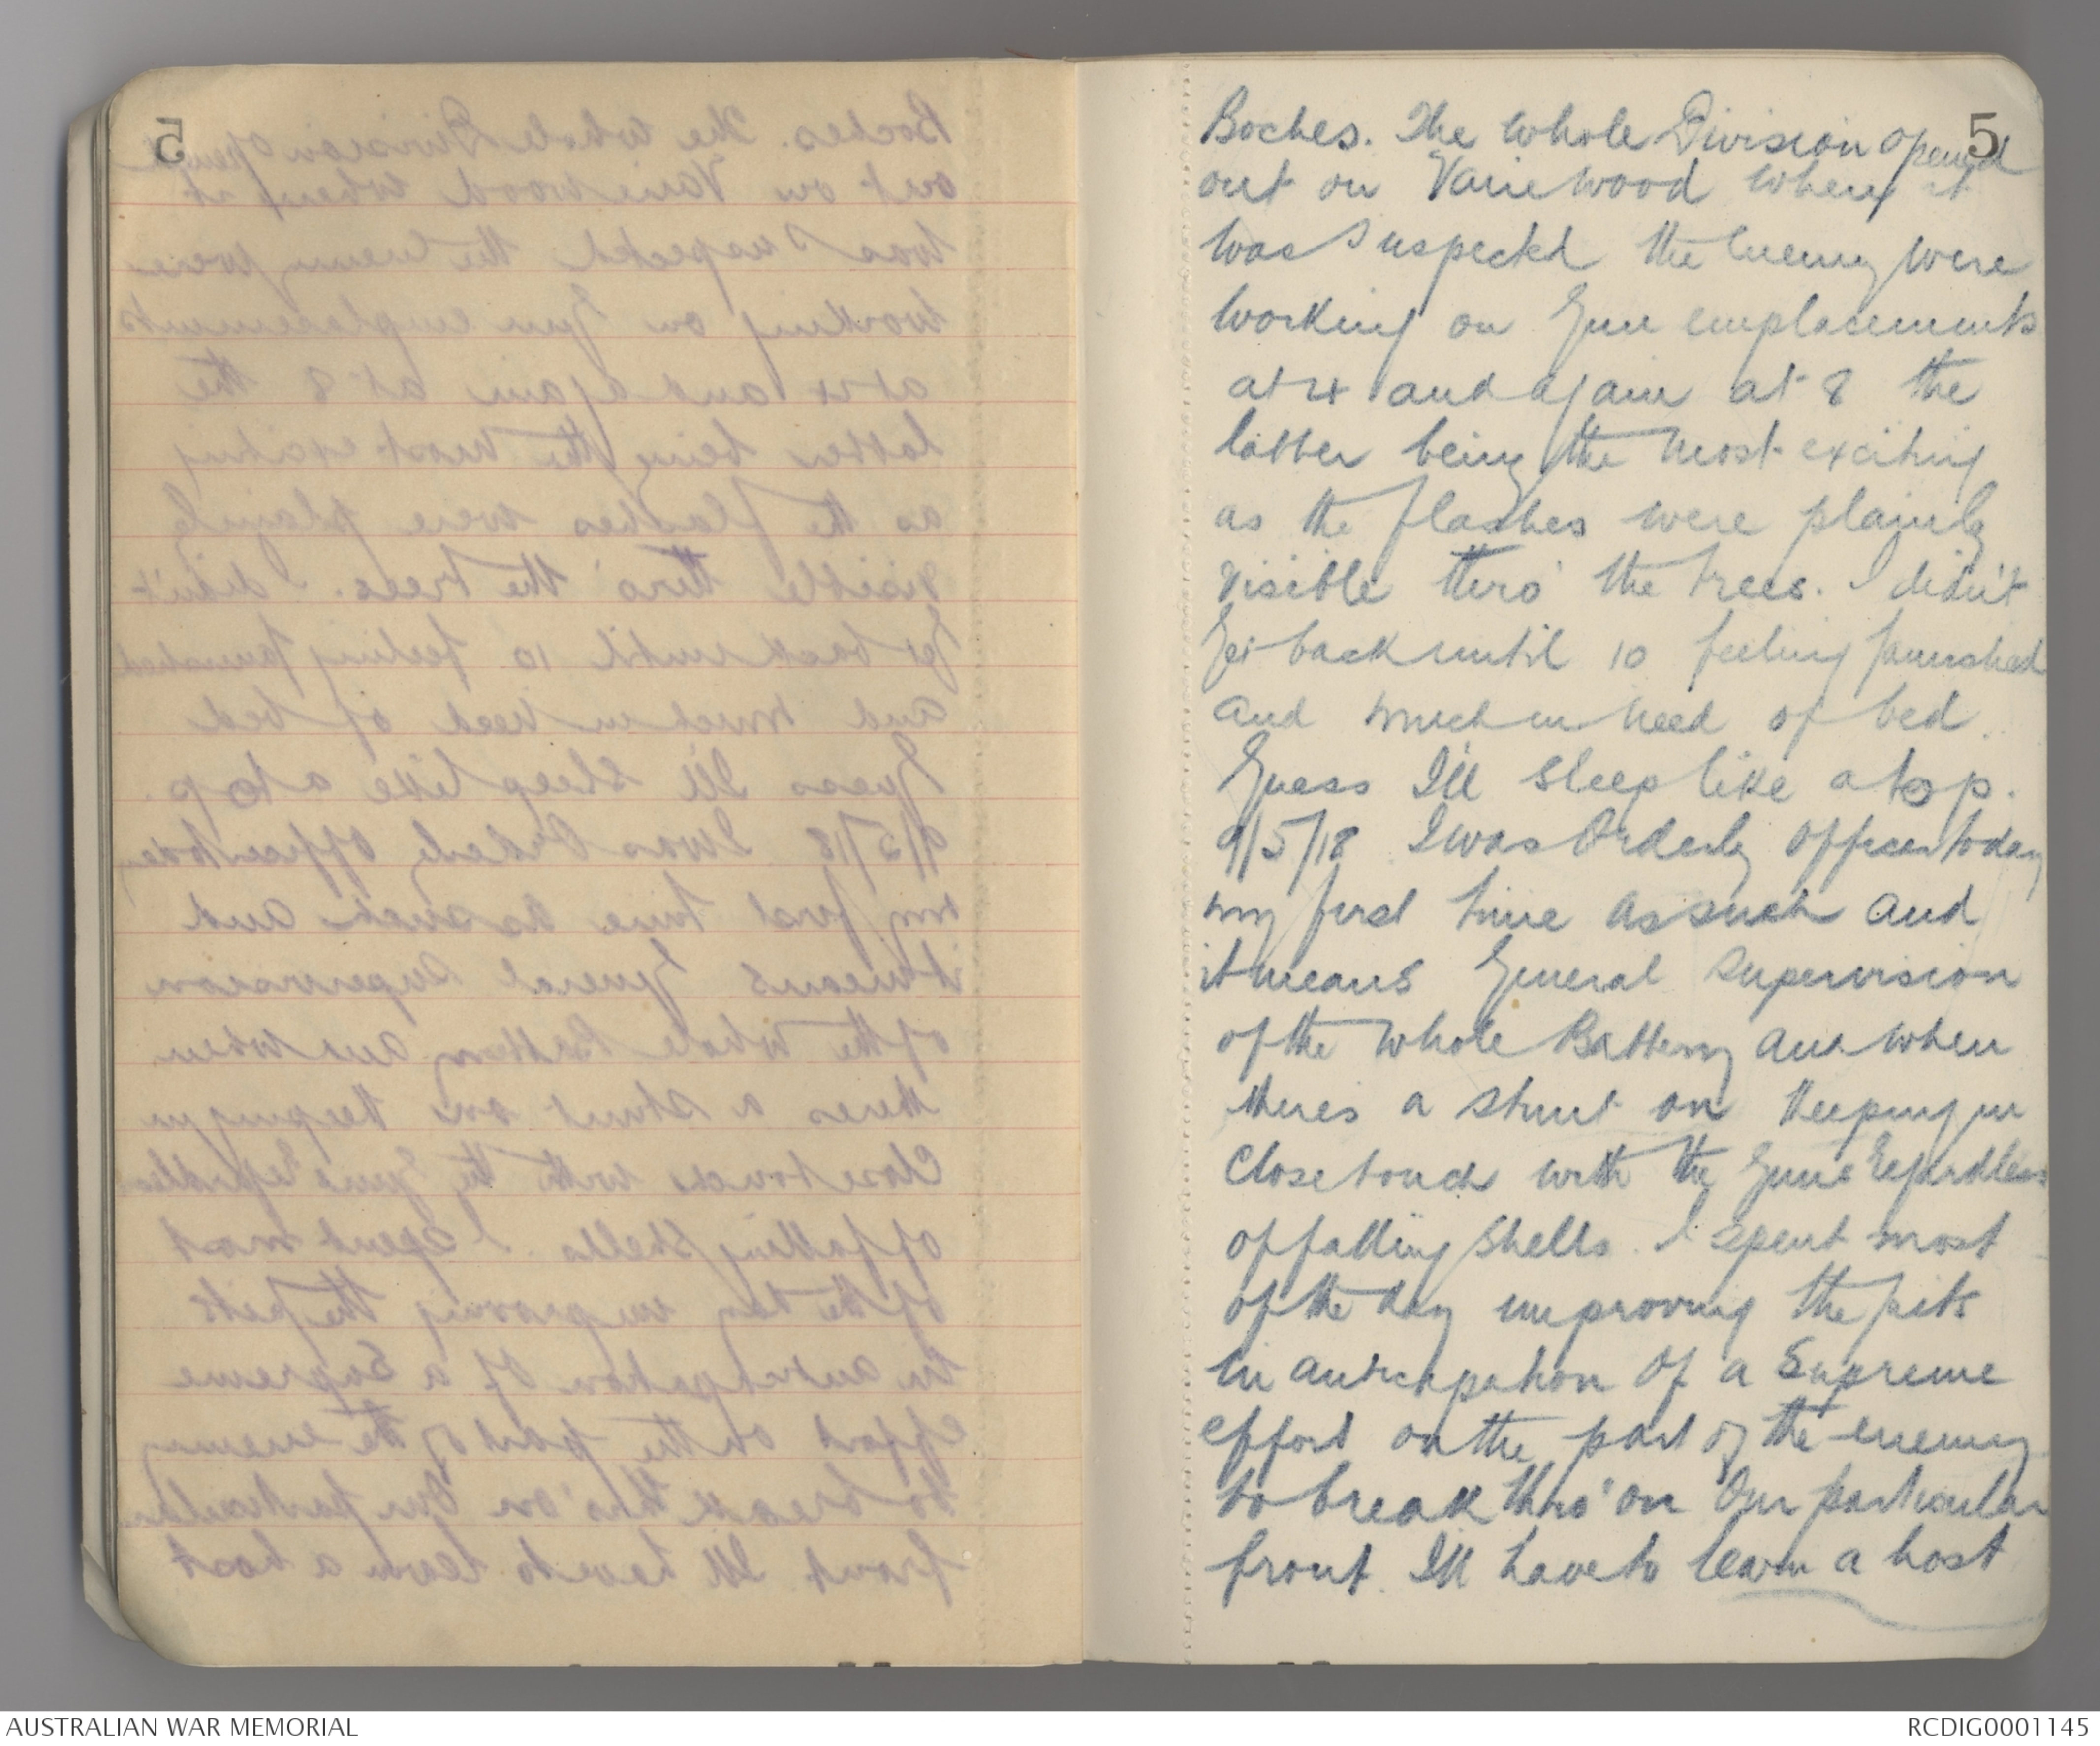 5
Boches. The whole Division opened
out on Vaire wood where it
was suspected the enemy were
working on Gun emplacements
at 4 and again at 8 the
latter being the most exciting
as the flashes were plainly
visible thro' the trees. I didn't
Get back until 10 feeling famished
and much in need of bed.
Guess I'll sleep like a top.
9/5/18 I was Orderly Officer today
my first time as such and
it means General supervision
of the whole Battery and when
theres a stunt on keeping in
close touch with the Guns regardless
of falling shells. I spent most
of the day improving the pits
in anticipation of a supreme
effort on the part of the enemy
to break thro' on Our particular
front. I'll have to learn a host
AUSTRALIAN WAR MEMORIAL
RCDIG0001145